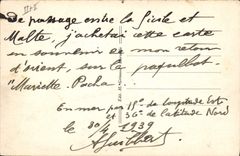 De passage entre la Sicile et
Malte, j'achetai cette carte
en souvenir de mon retour
d'orient, sur le paquebot
"Mariette-Pacha."
En mer par 15° de longitude Est
et 36° de latitude Nord
le 30/4 1939
AGuilbert